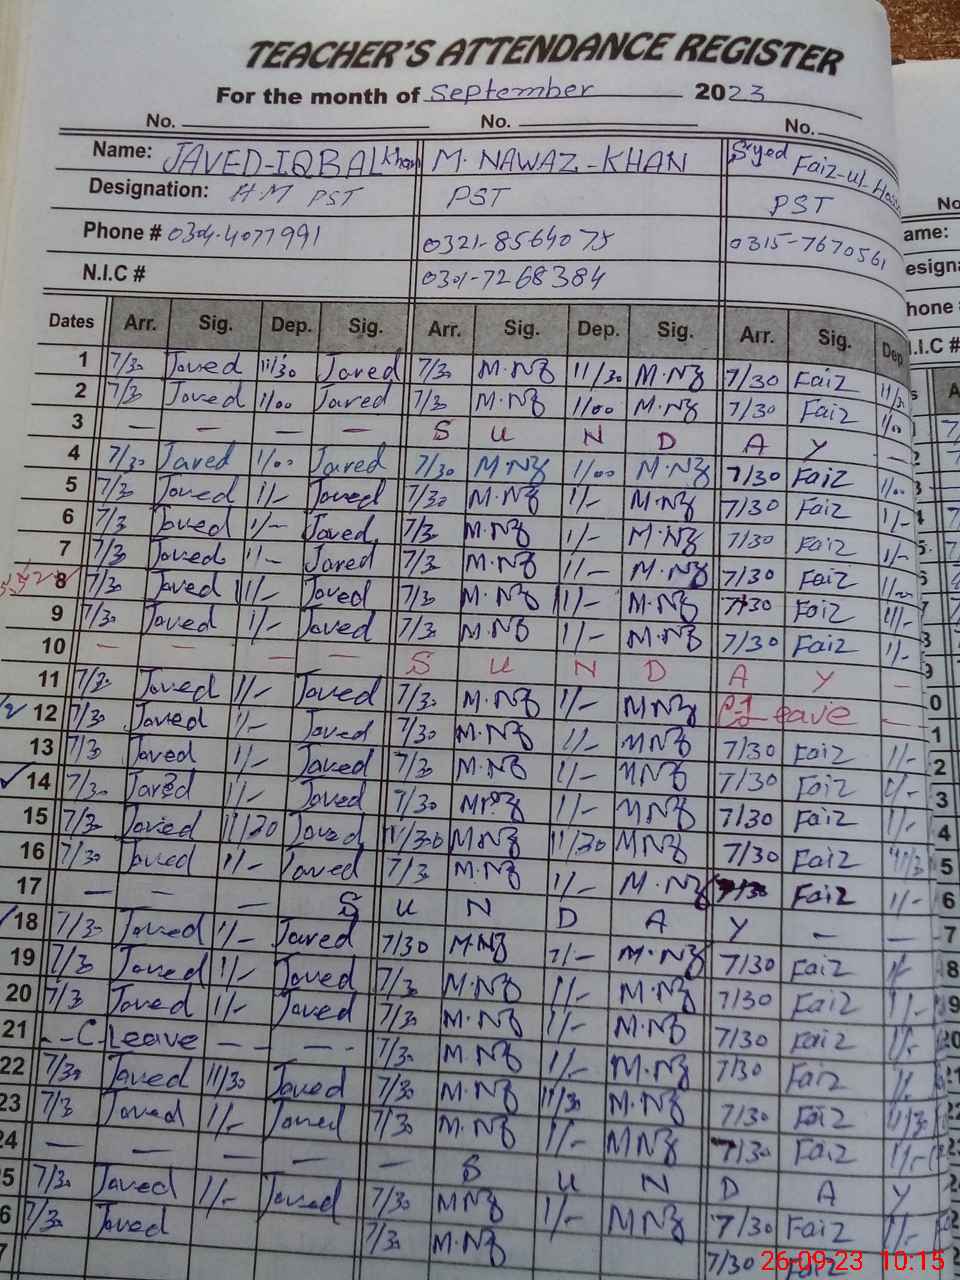 TEACHER'S ATTENDANCE REGISTER
For the month of September 2023
No. No. No.
Name: JAVED-IQBAL Khan M. NAWAZ-KHAN Syed Faiz-ul-
Designation: H.M PST PST PST
Phone # 0304-4077991 0321-8564078 0315-7670561
N.I.C # 0301-7268384
Dates Arr. Sig. Dep. Sig. Arr. Sig. Dep. Sig. Arr. Sig. Dep
1 7/30 Javed 11/30 Javed 7/30 M.NZ 11/30 M.NZ 7/30 Faiz 11/30
2 7/3 Javed 1/00 Javed 7/3 M.NZ 1/00 M.NZ 7/30 Faiz 1/00
3 — — — — S U N D A Y —
4 7/30 Javed 1/00 Javed 7/30 M.NZ 1/00 M.NZ 7/30 Faiz 1/00
5 7/3 Javed 1/- Javed 7/30 M.NZ 1/- M.NZ 7/30 Faiz 1/-
6 7/3 Javed 1/- Javed 7/3 M.NZ 1/- M.NZ 7/30 Faiz 1/-
7 7/3 Javed 11/- Javed 7/3 M.NZ 11/- M.NZ 7/30 Faiz
8 7/30 Javed 11/- Javed 7/3 M.NZ 11/- M.NZ 7/30 Faiz 11/-
9 7/30 Javed 1/- Javed 7/3 M.NZ 1/- M.NZ 7/30 Faiz 1/-
10 — — — — S U N D A Y —
11 7/3 Javed 1/- Javed 7/30 M.NZ 1/- MNZ Leave -
12 7/30 Javed 1/- Javed 7/30 M.NZ 1/- MNZ 7/30 Faiz 1/-
13 7/3 Javed 1/- Javed 7/3 M.NZ 1/- MNZ 7/30 Faiz 1/-
14 7/30 Javed 1/- Javed 7/30 1/- MNZ 7/30 Faiz 1/-
15 7/3 Javed 11/30 Javed MNZ 11/30 MNZ 7/30 Faiz
16 7/30 Javed 1/- Javed 7/3 M.NZ 1/- M.NZ 7/30 Faiz 1/-
17 — — — S U N D A Y — —
18 7/30 Javed 1/- Javed 7/30 M.NZ 1/- M.NZ 7/30 Faiz 1/-
19 7/3 Javed 1/- Javed 7/3 M.NZ 1/- M.NZ 7/30 Faiz 1/-
20 7/3 Javed 1/- Javed 7/3 M.NZ 1/- M.NZ 7/30 Faiz 1/-
21 - - C. Leave — — — 7/3 M.NZ 1/- M.NZ 7/30 Faiz
22 7/30 Javed 11/30 Javed 7/30 M.NZ 11/30 M.NZ 7/30 Faiz 11/30
23 7/3 Javed 1/- Javed 7/30 M.NZ 1/- MNZ 7/30 Faiz 1/-
24 — — — — — S U N D A Y
25 7/30 Javed 1/- Javed 7/30 MNZ 1/- MNZ 7/30 Faiz 1/-
26 7/3 Javed 7/30 M.NZ 7/30 Faiz
26-09-23 10:15